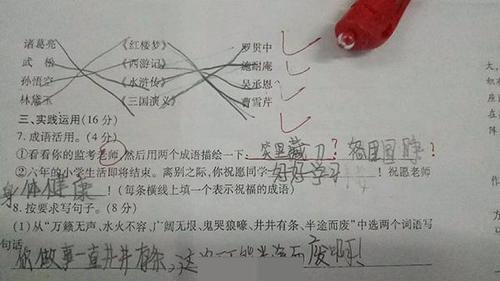 诸葛亮 《红楼梦》 罗贯中
武松 《西游记》 施耐庵
孙悟空 《水浒传》 吴承恩
林黛玉 《三国演义》 曹雪芹
三、实践运用(16分)
7. 成语活用。(4分)
①看看你的监考老师,然后用两个成语描绘一下。笑里藏刀?
②六年的小学生活即将结束。离别之际,你祝愿同学好好学习!祝愿老师
身体健康!(每条横线上填一个表示祝福的成语)
8. 按要求写句子。(8分)
(1)从“万籁无声、水火不容、广阔无垠、鬼哭狼嚎、井井有条、半途而废”中选两个词语写
句话
你做事一直井井有条,这 废啊!